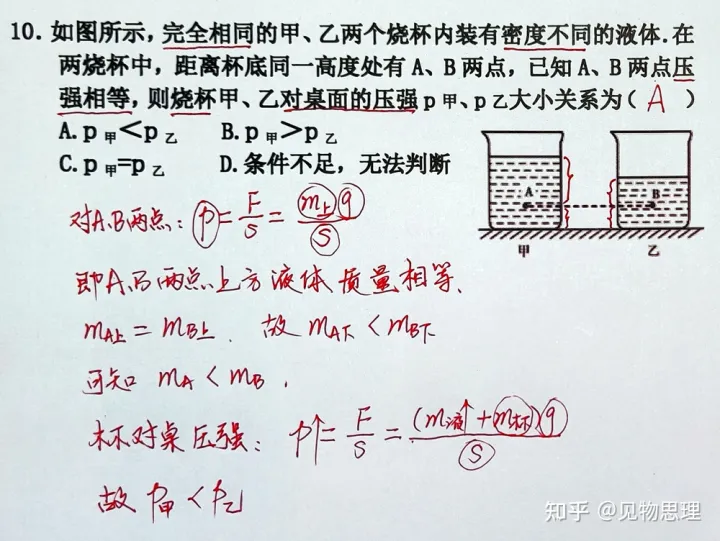 10. 如图所示,完全相同的甲、乙两个烧杯内装有密度不同的液体.在
两烧杯中,距离杯底同一高度处有A、B两点,已知A、B两点压
强相等,则烧杯甲、乙对桌面的压强p甲、p乙大小关系为( A )
A. p甲<p乙 B. p甲>p乙
C. p甲=p乙 D. 条件不足,无法判断
A B
甲 乙
对A、B两点: p = F/S = m上g/S
即A、B两点上方液体质量相等.
mA上 = mB上. 故 mA下 < mB下
可知 mA < mB.
杯对桌压强: p↑ = F/S = (m液↑ + m杯)g/S
故 p甲 < p乙
知乎 @见物思理